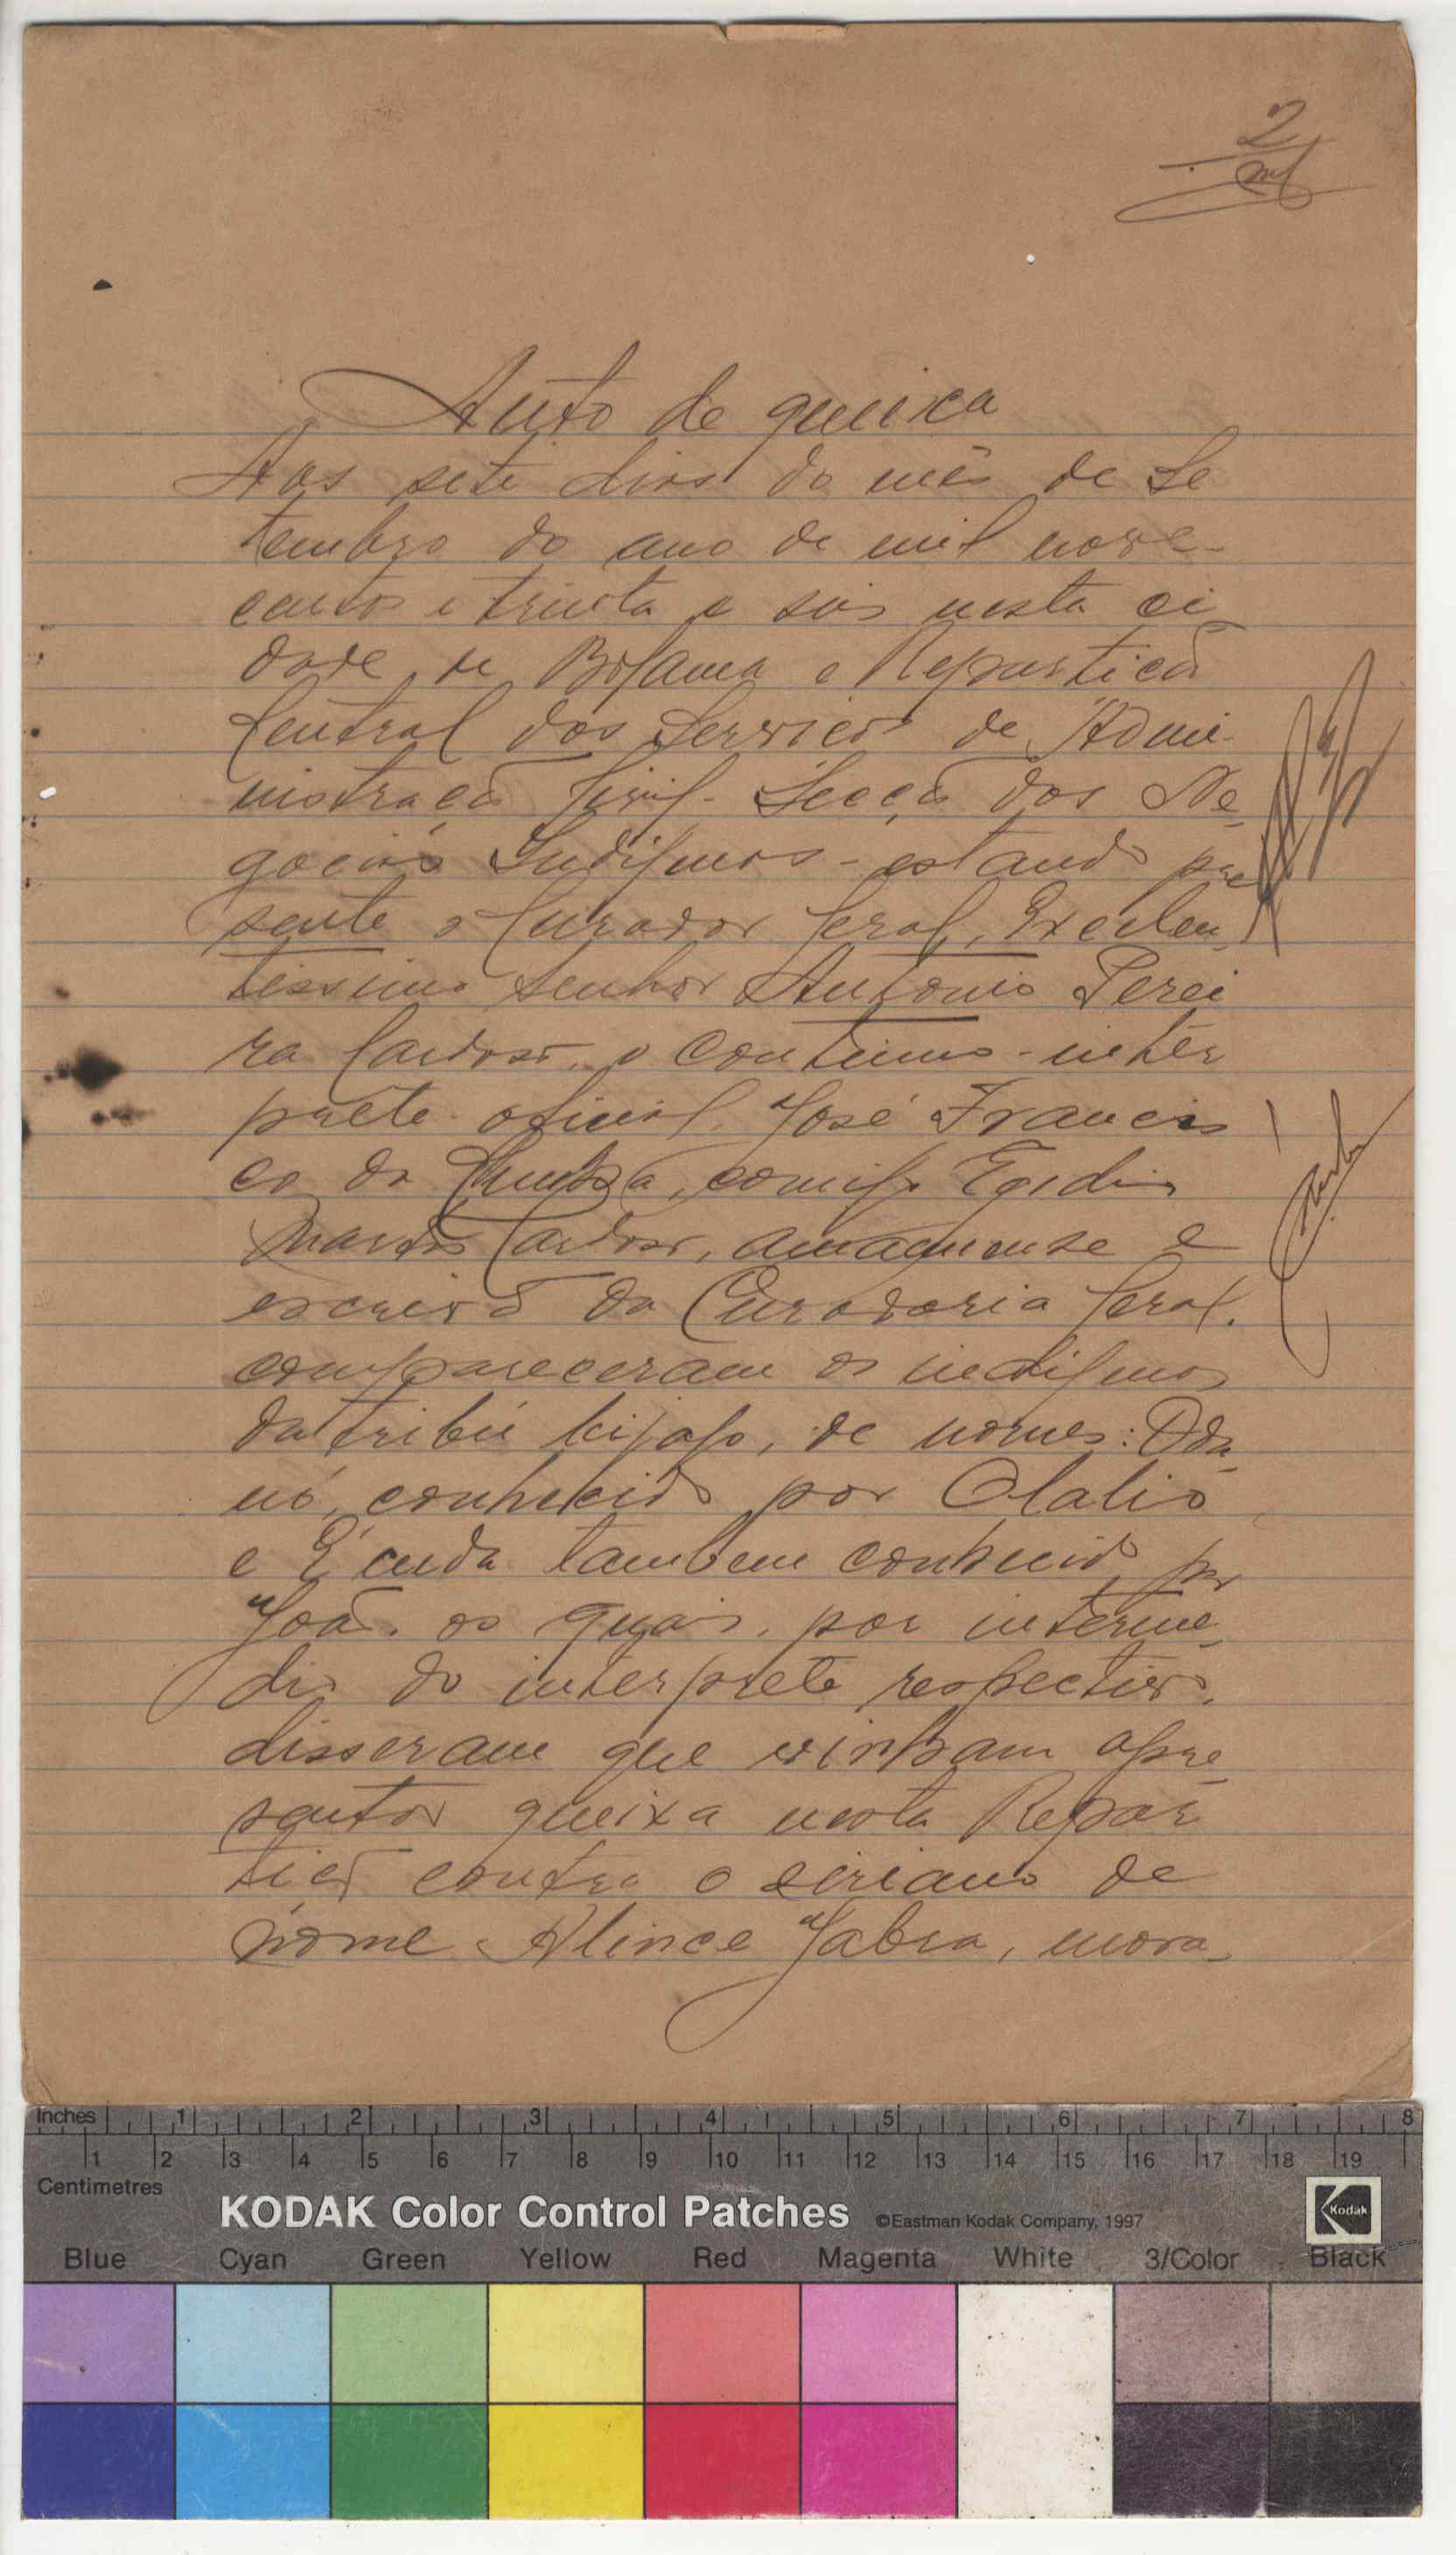 2
Auto de queixa
Aos sete dias do mês de Se
tembro do ano de mil nove-
centos e trinta e seis nesta ci
dade de Bolama e Repartição
Central dos Serviços de Admi-
nistração Civil - Secção dos Ne-
gocios Indigenas - estando pre
sente o Curador Geral, Excelen-
tissimo Senhor Antonio Perei
ra Cardoso, o continuo-inter
prete oficial, José Francis
co da comigo Egidio
Cardoso, amanuense e
escrivão da Curadoria Geral,
compareceram os indigenas
da tribu bijagó, de nomes: Oda-
nó, conhecido por Olalio
e tambem conhecido por
João, os quais, por interme-
dio do interprete respectivo,
disseram que vinham apre-
sentar queixa nesta Repar
tição contra o siriano de
nome Alince Jabra, mora-
Inches 1 2 3 4 5 6 7 8
1 2 3 4 5 6 7 8 9 10 11 12 13 14 15 16 17 18 19
Centimetres
KODAK Color Control Patches ©Eastman Kodak Company, 1997 Kodak
Blue Cyan Green Yellow Red Magenta White 3/Color Black